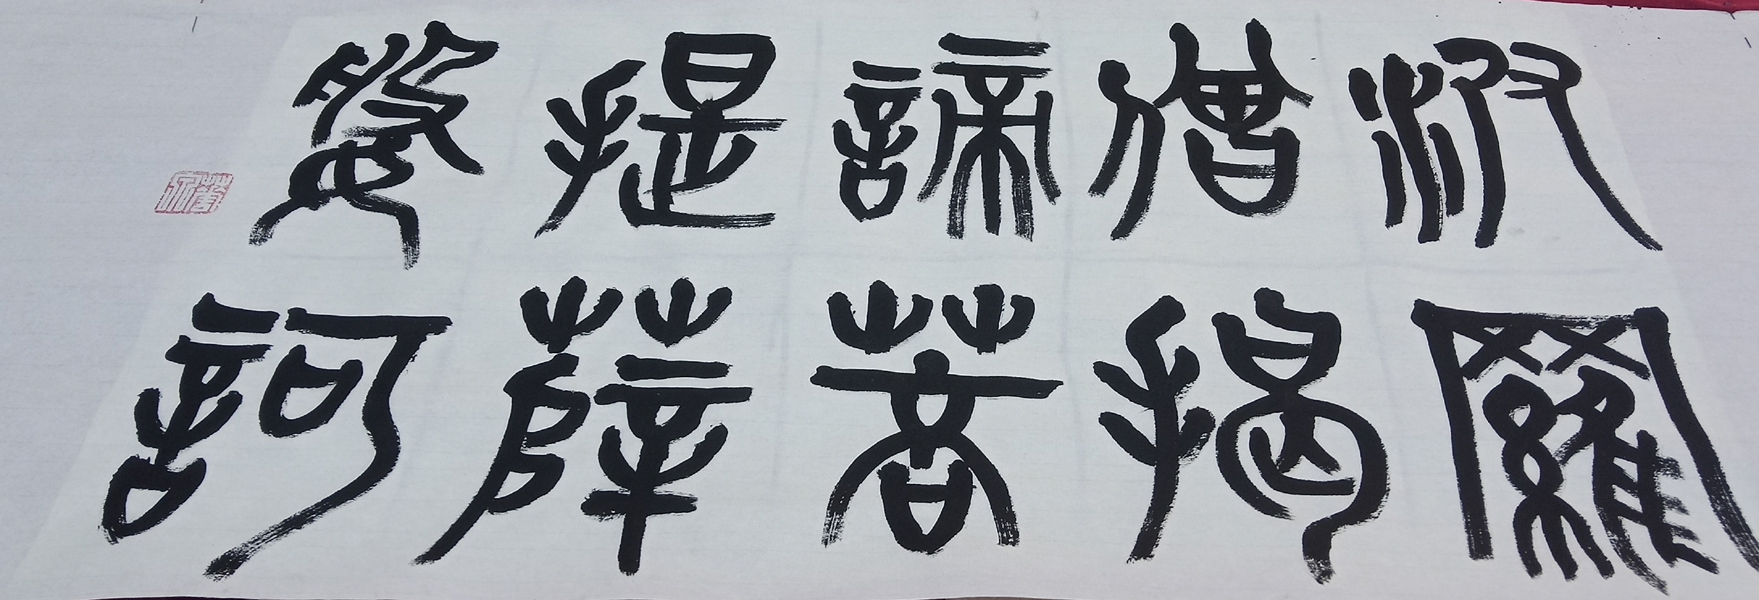 波羅
僧揭
諦菩
提薩
婆訶